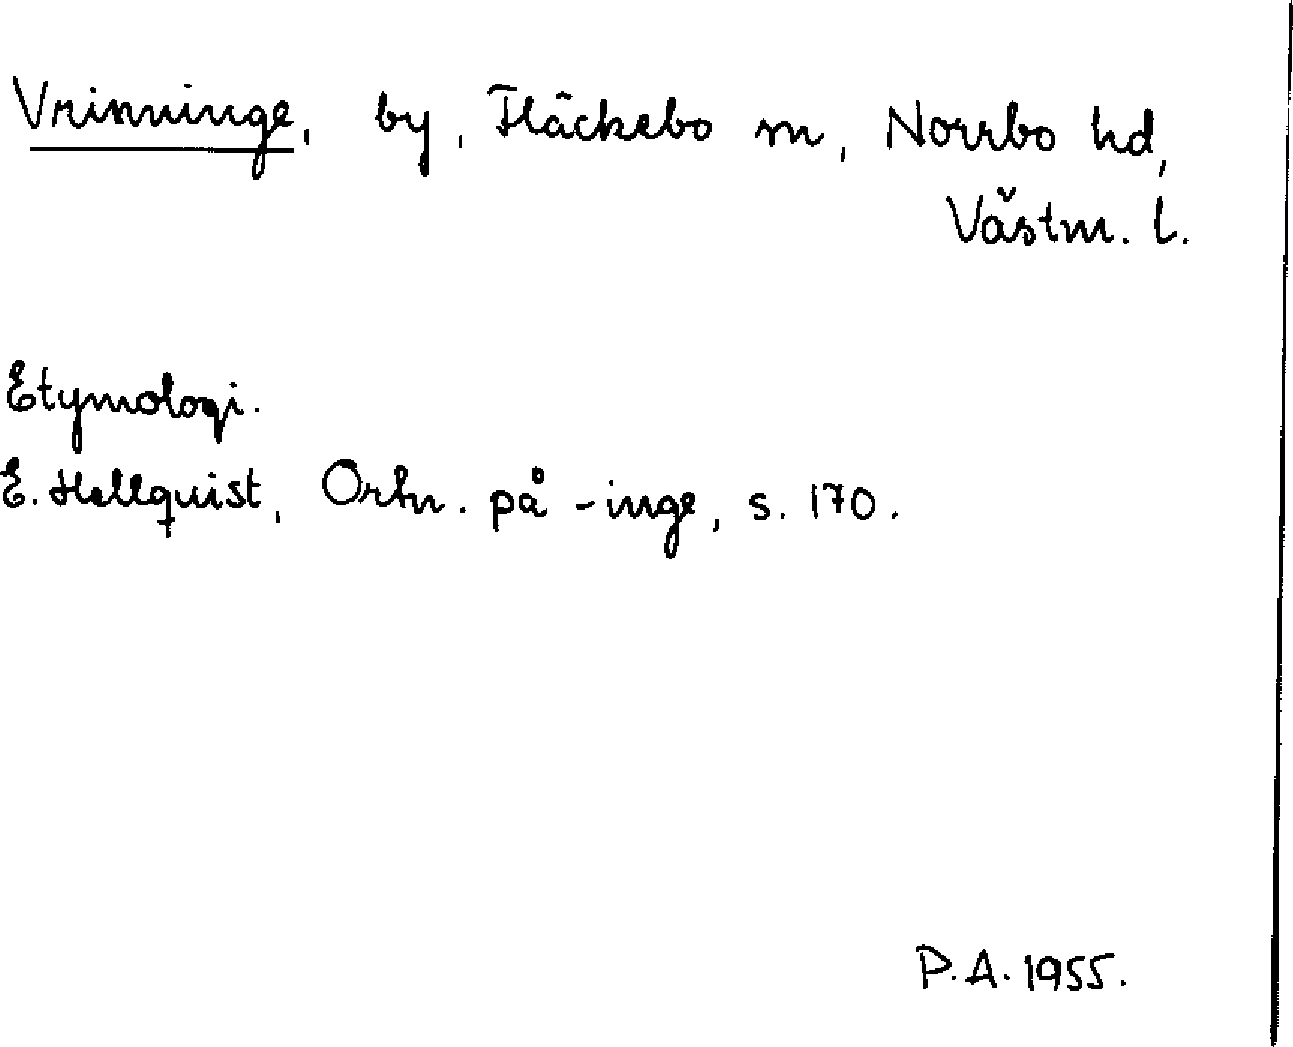 Vrinninge, by, Fläckebo sn, Norrbo hd,
Västm. l.
Etymologi.
E. Hellquist, Ortn. på -inge, s. 170.
P.A. 1955.